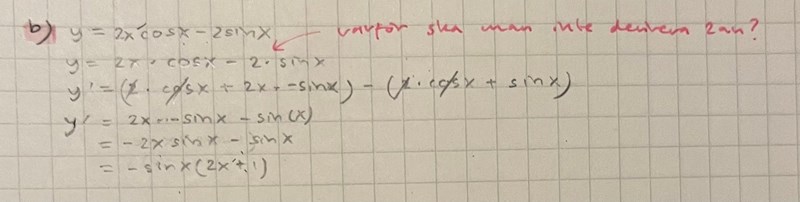 b) y = 2x cosx - 2sinx varför ska man inte derivera 2an?
y = 2x · cosx - 2 · sinx
y' = (2 · cosx + 2x · -sinx) - (2 · cosx + sinx)
y' = 2x · -sinx - sin(x)
= -2x sinx - sinx
= -sinx(2x+1)